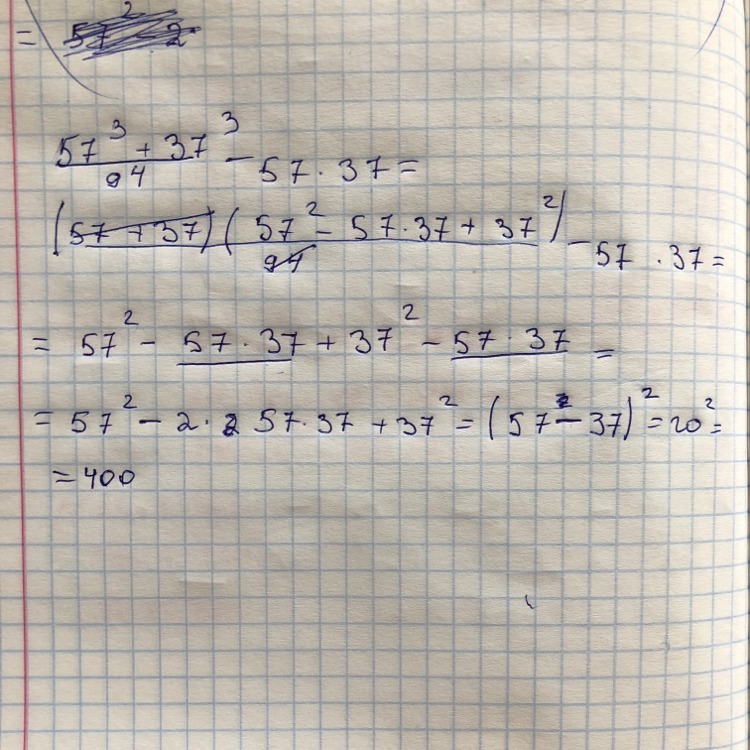 =
57³ + 37³ / 94 - 57 · 37 =
(57 + 37)(57² - 57·37 + 37²) / 94 - 57 · 37 =
= 57² - 57 · 37 + 37² - 57 · 37 =
= 57² - 2 · 57·37 + 37² = (57 - 37)² = 20² =
= 400